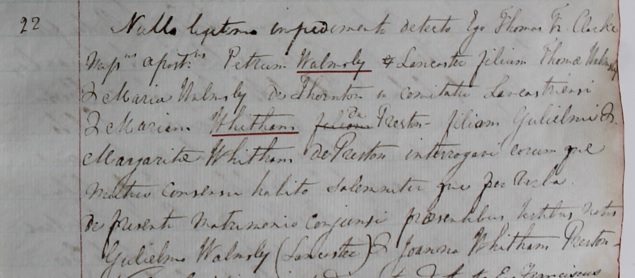 22 Nullo legitimo impedimento detecto Ego Thomas Fr. Clarke
Petrum Walmsly Lancastr filium Thomæ Walmsly
& Mariæ Walmsly de Thornton in comitatu Lancastriensi
& Mariam Whitham Preston filiam Gulielmi &
Margaritæ Whitham de Preston interrogavi eorumque
mutuo consensu habito solemniter que per verba
de presenti matrimonio conjunxi præsentibus testibus notis
Gulielmo Walmsly (Lancastr) & Joanna Whitham Preston